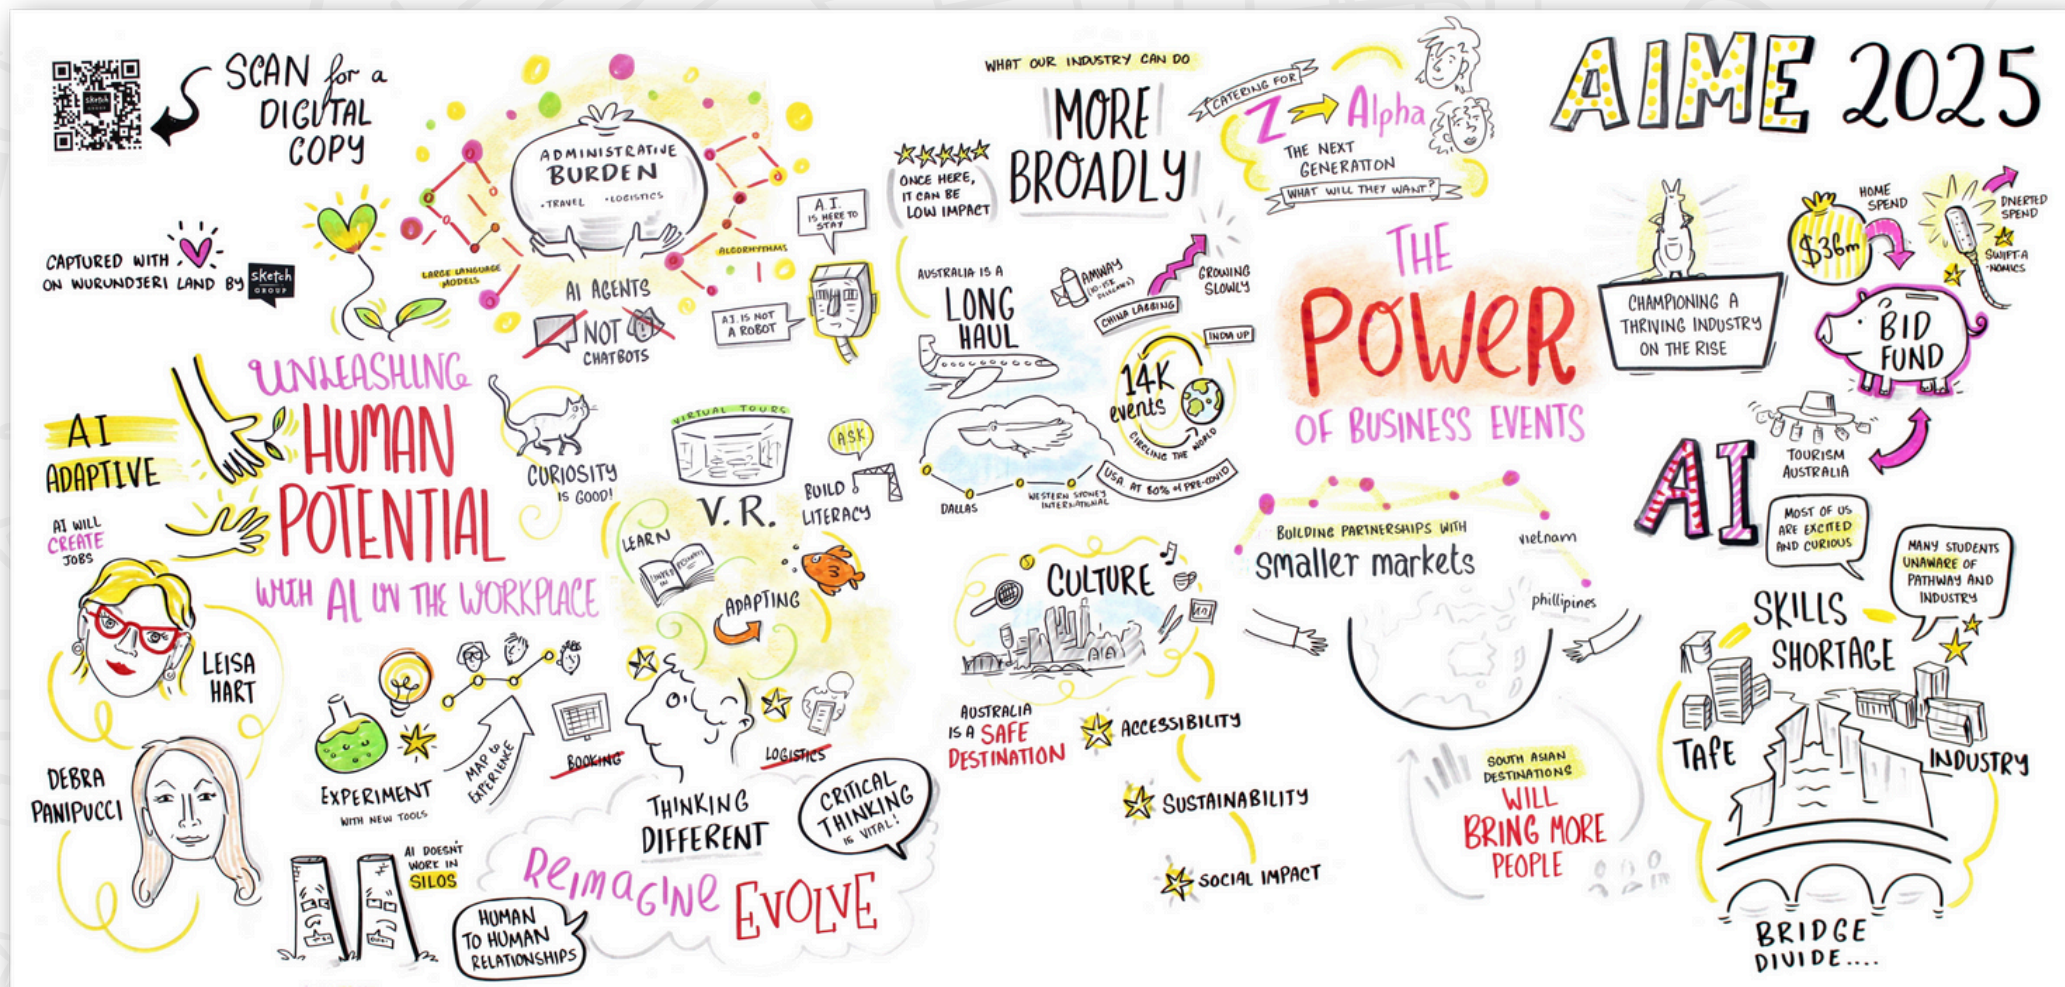 SCAN for a
DIGITAL
COPY
sketch
GROUP
CAPTURED WITH
ON WURUNDJERI LAND BY
sketch
GROUP
ADMINISTRATIVE
BURDEN
• TRAVEL • LOGISTICS
LARGE LANGUAGE
MODELS
ALGORHYTHMS
AI AGENTS
NOT
CHATBOTS
A.I.
IS HERE TO
STAY
A.I. IS NOT
A ROBOT
UNLEASHING
HUMAN
POTENTIAL
WITH AI IN THE WORKPLACE
AI
ADAPTIVE
AI WILL
CREATE
JOBS
LEISA
HART
DEBRA
PANIPUCCI
CURIOSITY
IS GOOD!
VIRTUAL TOURS
V.R.
ASK
BUILD
LITERACY
LEARN
ADAPTING
EXPERIMENT
WITH NEW TOOLS
MAP to
EXPERIENCE
BOOKING
LOGISTICS
THINKING
DIFFERENT
CRITICAL
THINKING
IS VITAL!
REIMAGINE EVOLVE
AI DOESN'T
WORK IN
SILOS
HUMAN
TO HUMAN
RELATIONSHIPS
WHAT OUR INDUSTRY CAN DO
MORE
BROADLY
ONCE HERE,
IT CAN BE
LOW IMPACT
AUSTRALIA IS A
LONG
HAUL
AMWAY
CHINA LAGGING
GROWING
SLOWLY
INDIA UP
14K
events
CIRCLING THE WORLD
USA AT 80% of PRE-COVID
DALLAS
WESTERN SYDNEY
INTERNATIONAL
CULTURE
AUSTRALIA
IS A SAFE
DESTINATION
ACCESSIBILITY
SUSTAINABILITY
SOCIAL IMPACT
CATERING FOR
Z Alpha
THE NEXT
GENERATION
WHAT WILL THEY WANT?
THE
POWER
OF BUSINESS EVENTS
BUILDING PARTNERSHIPS WITH
smaller markets
vietnam
phillipines
SOUTH ASIAN
DESTINATIONS
WILL
BRING MORE
PEOPLE
AIME 2025
CHAMPIONING A
THRIVING INDUSTRY
ON THE RISE
$36m
HOME
SPEND
SPEND
SWIFT-A
-NOMICS
BID
FUND
TOURISM
AUSTRALIA
AI
MOST OF US
ARE EXCITED
AND CURIOUS
MANY STUDENTS
UNAWARE OF
PATHWAY AND
INDUSTRY
SKILLS
SHORTAGE
TAFE
INDUSTRY
BRIDGE
DIVIDE....